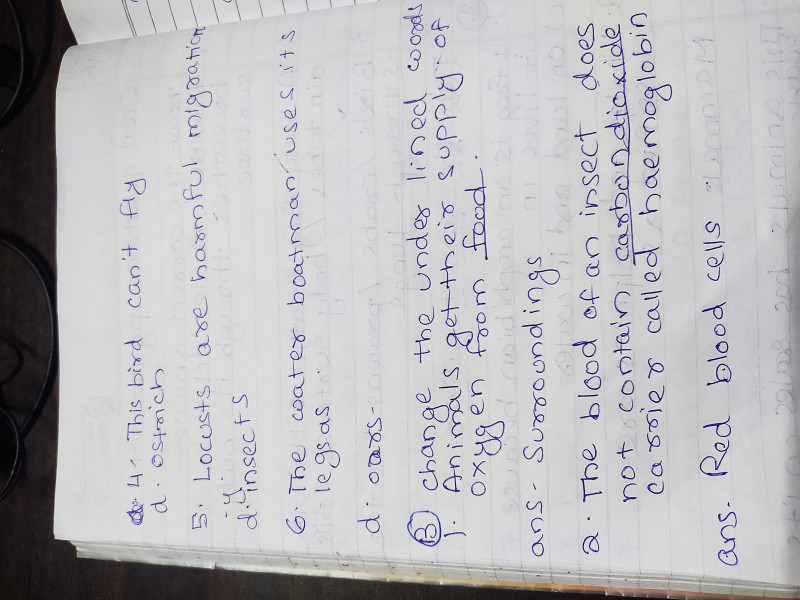 4. This bird can't fly
d. ostrich
5. Locusts are harmful migration
d. insects
6. The water boatman uses its
legs as.
d. oars.
B change the under lined words
1. Animals get their supply of
oxygen from food.
ans- Surroundings
2. The blood of an insect does
not contain carbondioxide
carrier called haemoglobin
ans. Red blood cells